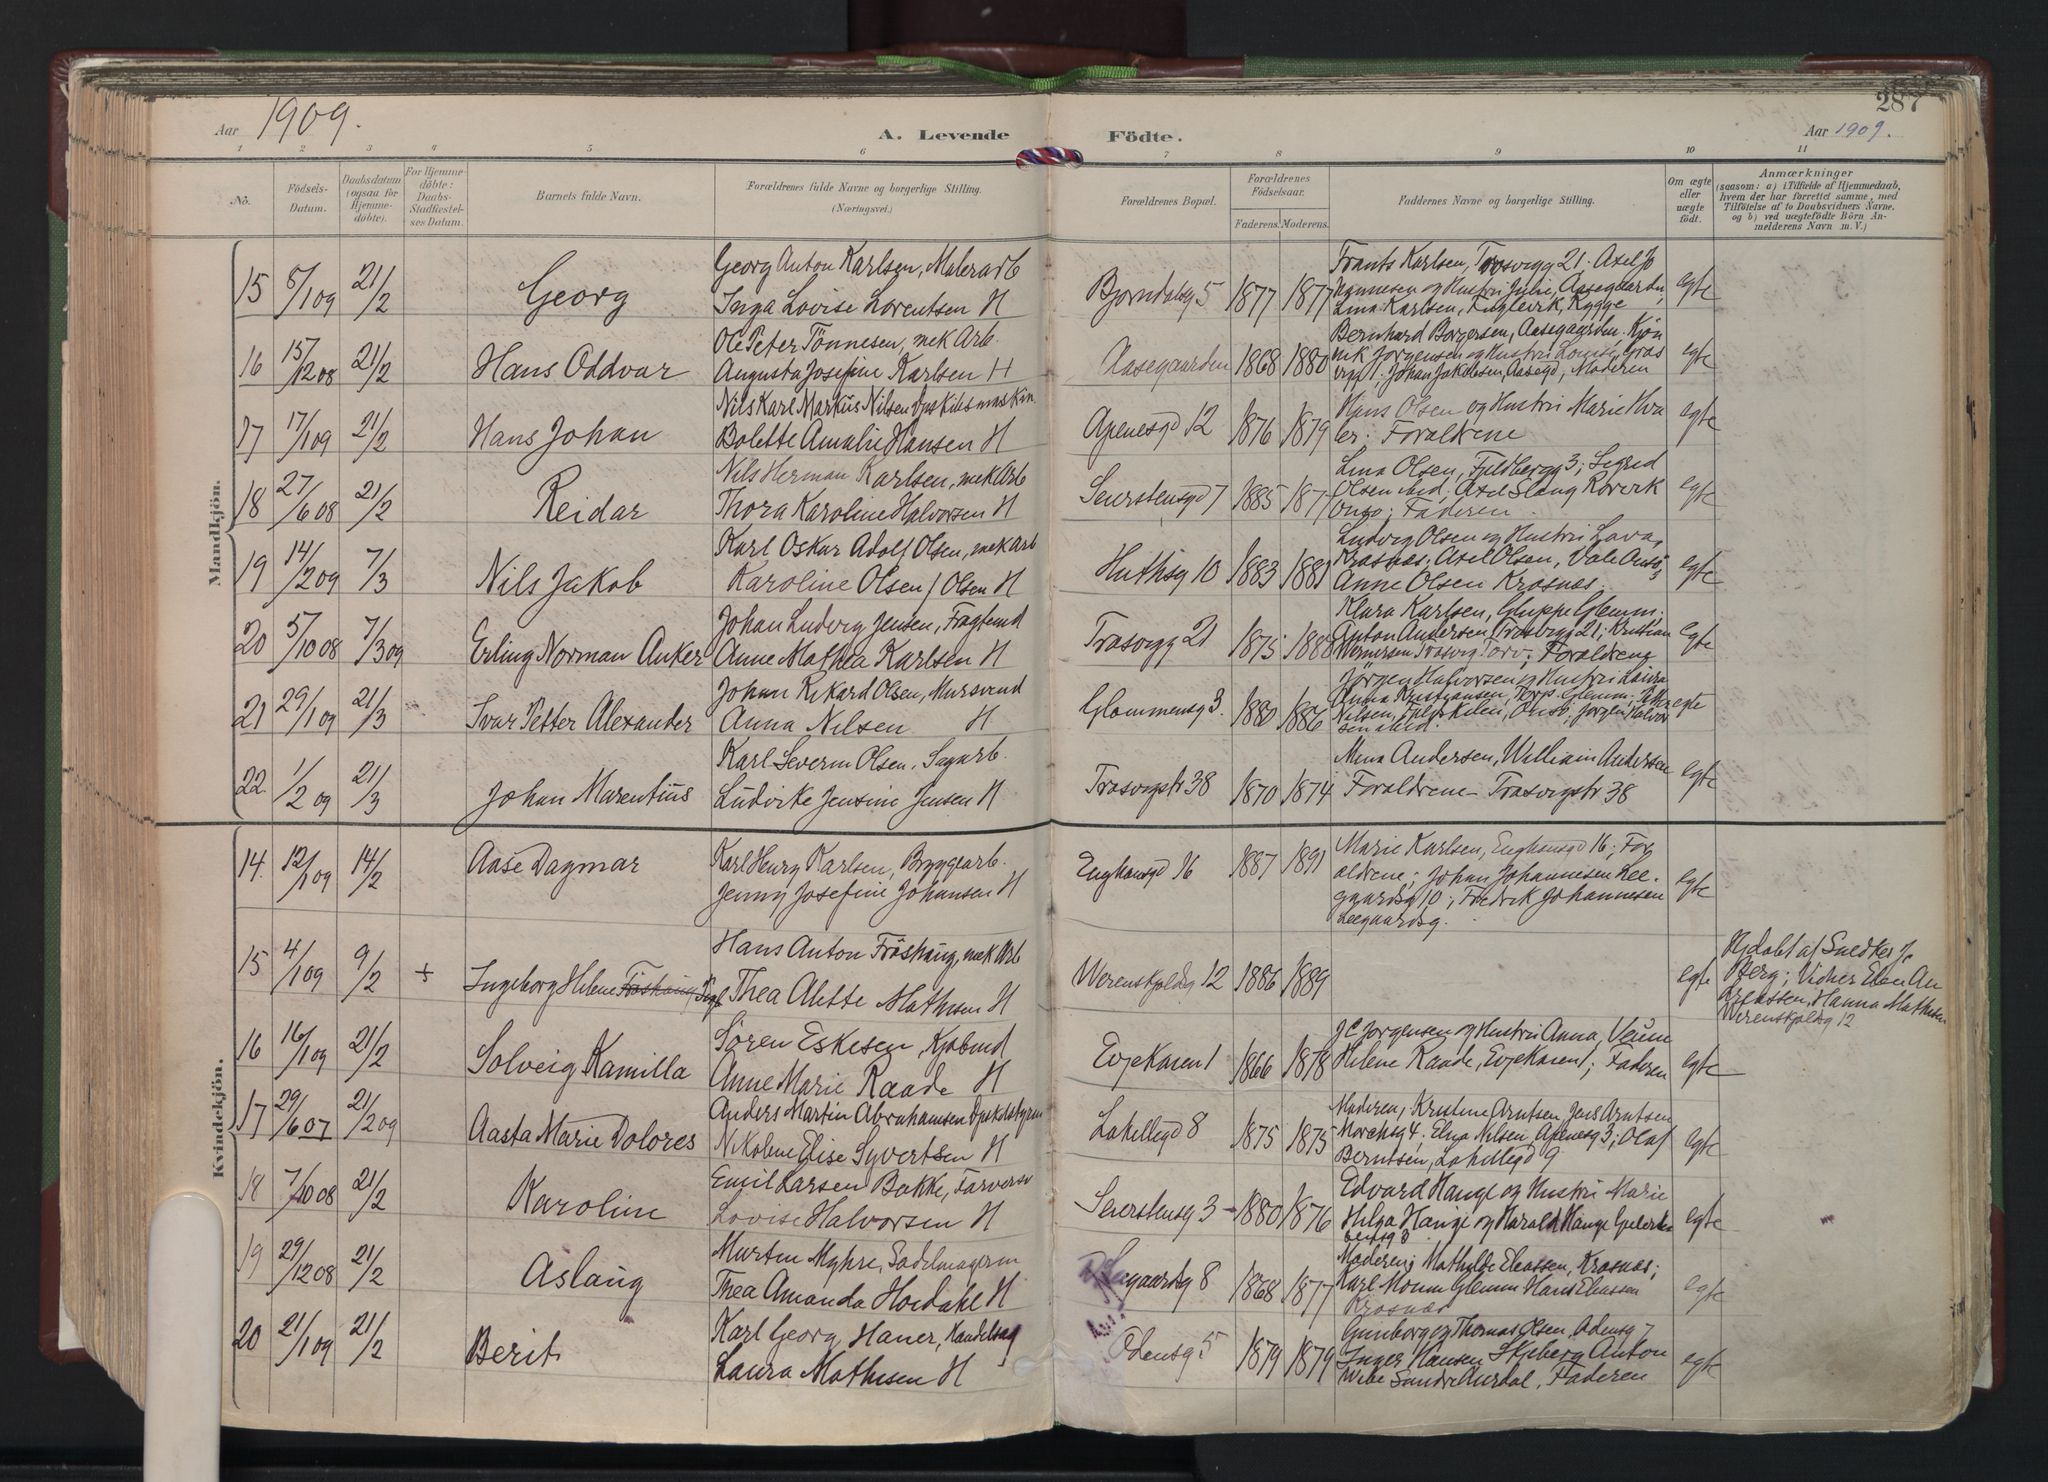 Aar 1909.
A. Levende Födte.
287
Aar 1909.
1 2 3 4 5 6 7 8 9 10 11
No.
Födsels-
Datum.
Daabsdatum
(ogsaa for
Hjemme-
døbte).
For Hjemme-
døbte:
Daabs-
Stadfæstel-
ses Datum.
Barnets fulde Navn.
Forældrenes fulde Navne og borgerlige Stilling.
(Næringsvei.)
Forældrenes Bopæl.
Forældrenes
Födselsaar.
Faderens. Moderens.
Faddernes Navne og borgerlige Stilling.
Om ægte
eller
uægte
födt.
Anmærkninger
(saasom: a) i Tilfælde af Hjemmedaab,
hvem der har forrettet samme, med
Tilföielse af to Daabsvidners Navne.
og b) ved uægtefödte Börn An-
melderens Navn m. V.)
Mandkjön.
15 5/1 09 21/2 Georg
Georg Anton Karlsen, Malerarb
Inga Lovise Lorentsen H
Bjorndalsg 5 1877 1877
Frants Karlsen, Trosvigg 21. Axel Jo
hannesen og Hustru Julie, Aasegaarden,
Lina Karlsen, Fuglevik, Rygge
egte
16 15/12 08 21/2 Hans Oddvar
Ole Peter Tönnesen, mek Arb.
Augusta Josefine Karlsen H
Aasegaarden 1868 1880
Bernhard Borgersen, Aasegaarden.
Jorgensen og Hustru Louise,
Johan Jakobsen, Aasegd, Moderen
egte
17 17/1 09 21/2 Hans Johan
Nils Karl Markus Nilsen
Bolette Amalie Hansen H
Apenesgd 12 1876 1879
Hans Olsen og Hustru Marie Hva
ler. Foraldrene
egte
18 27/6 08 21/2 Reidar
Nils Herman Karlsen, mek Arb
Thora Karoline Halvorsen H
Seierstensgd 7 1885
Lina Olsen, Fjeldbergg 3; Sigrid
Olsen ibid; Axel Slang Rorvik
Onso; Faderen.
egte
19 14/2 09 7/3 Nils Jakob
Karl Oskar Adolf Olsen, mek Arb
Karoline Olsen / Olsen H
Huthsg 10 1883 1881
Ludvig Olsen og Hustru Lava,
Krosnes; Axel Olsen, Vale Onsö;
Anne Olsen Krosnæs.
egte
20 5/10 08 7/3 09 Erling Norman Anker
Johan Ludvig Jensen,
Anne Mathea Karlsen H
Trosvigg 21 1875 1888
Klara Karlsen, Gluppe Glemm;
Anton Andersen Trosvigg 21; Kristian
Wernersen Trosvig Torv; Foraldrene
egte
21 29/1 09 21/3 Ivar Petter Alexander
Johan Rikard Olsen, Mursvend
Anna Nilsen H
Glommensg 3. 1880 1886
Jörgen Halvorsen og Hustru Laura
Anna Kristiansen, Torp. Glemm;
Nilsen, Onsö; Jorgen Halvor
sen ibid.
egte
22. 1/2 09 21/3 Johan Marentius
Karl Severin Olsen, Sagarb.
Ludvike Jensine Jensen H
Trosvigstr 38 1870 1874
Mina Andersen, William Andersen
Foraldrene Trosvigstr 38
egte
Kvindekjön.
14. 12/1 09 14/2 Aase Dagmar
Karl Henry Karlsen, Bryggearb.
Jenny Josefine Johansen H
Enghausgd 16 1887 1891
Marie Karlsen, Enghausgd 16; For
aldrene; Johan Johannesen Lee-
gaardsg 10; Fredrik Johannesen
Leegaardsg.
egte
15 4/1 09 9/2 + Ingeborg Helene Fröshaug
Hans Anton Fröshaug, mek Arb
Thea Alette Mathisen H
Werenskjoldsg 12 1886 1889
egte
Hjdobt af Snedker
Berg; Vidner Ellen An
dreassen, Hanna Mathisen
Werenskjoldsg 12
16 16/1 09 21/2 Solveig Kamilla
Sören Eskesen, Kjobmd
Anne Marie Raade H
Evjekaren 1 1866 1878
J C Jorgensen og Hustru Anna, Veum
Helene Raade, Evjekaren 1; Faderen
egte
17 29/6 07 21/2 09 Aasta Marie Dolores
Anders Martin Abrahamsen
Nikoline Elise Syvertsen H
Lakillegd 8 1875 1875
Moderen, Kristine Arntsen, Jens Arntsen
Morchsg 4. Elna Nilsen, Apenesg 3; Olaf
Berntsen, Lakillegd 9
egte
18 7/10 08 21/2 Karoline
Emil Larsen Bakke, Farversv
Lovise Halvorsen H
Seierstensg 3 1880 1876
Edvard Hauge og Hustru Marie
Helga Hauge og Harald Hauge
egte
19 29/12 08 21/2 Aslaug
Morten Myhre, Sadelmagerm
Thea Amanda Hordahl H
gaardsg 8 1868 1877
Moderen; Mathilde Eliassen, Krosnæs;
Karl Moum Glemm Hans Eliassen
Krosnæs
egte
20 21/1 09 21/2 Berit
Karl Georg Haner, Handelsag
Laura Mathisen H
Odensg 5 1879 1879
Gunborg og Thomas Olsen, Odensg 7
Inger Hansen Skjeberg Anton
Wibe Søndre Aurdal, Faderen
egte